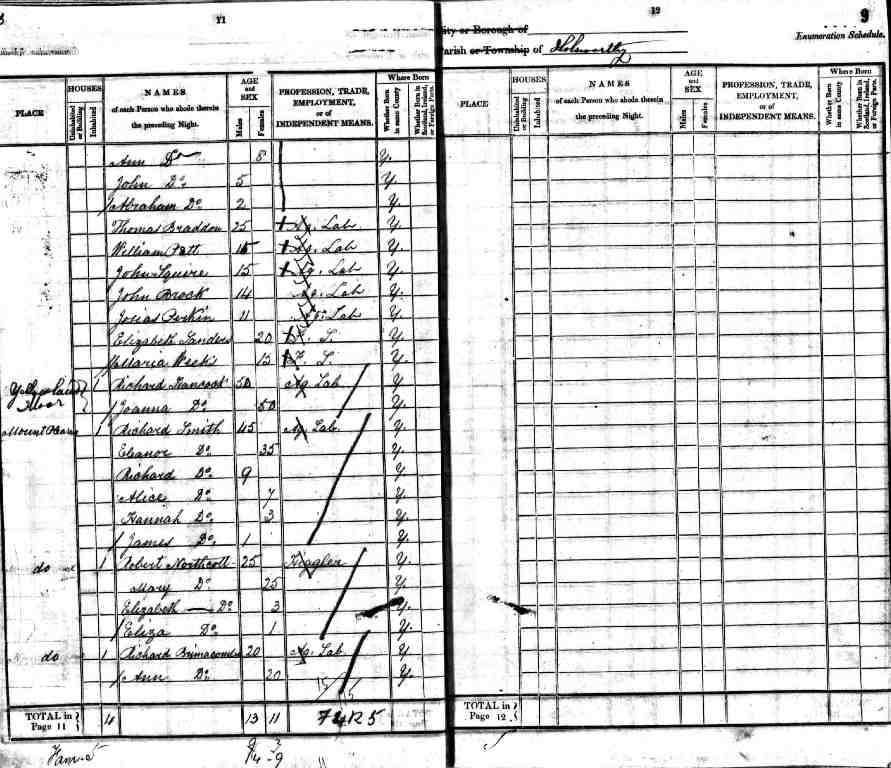 11
PLACE
HOUSES
Uninhabited or Building
Inhabited
NAMES
of each Person who abode therein
the preceding Night.
AGE
and
SEX
Males
Females
PROFESSION, TRADE,
EMPLOYMENT,
or of
INDEPENDENT MEANS.
Where Born
Whether Born in same County
Whether Born in Scotland, Ireland, or Foreign Parts.
Ann Do 8 Y.
John Do 5 Y.
Abraham Do 2 Y.
Thomas Braddon 25 Ag. Lab Y.
William Pett 15 Ag. Lab Y.
John Squire 15 Ag. Lab Y.
John Brock 14 Ag. Lab Y.
Josias Perkin 11 Ag. Lab Y.
Elizabeth Sanders 20 F. S. Y.
Maria Weeks 15 F. S. Y.
Moor 1 Richard Hancock 50 Ag Lab Y.
Joanna Do 50 Y.
Mount Pleasant 1 Richard Smith 45 Ag. Lab. Y.
Eleanor Do 35 Y.
Richard Do 9 Y
Alice Do 7 Y.
Hannah Do 3 Y.
James Do 1 Y.
do 1 Robert Northcott 25 Higgler Y.
Mary Do 25 Y.
Elizabeth Do 3 Y.
Eliza Do 1 Y.
do 1 Richard Brimacombe 20 Ag. Lab. Y.
Ann Do 20 Y.
TOTAL in
Page 11
4 13 11
12
9
City or Borough of
Parish or Township of Holsworthy
Enumeration Schedule.
PLACE
HOUSES
Uninhabited or Building
Inhabited
NAMES
of each Person who abode therein
the preceding Night.
AGE
and
SEX
Males
Females
PROFESSION, TRADE,
EMPLOYMENT,
or of
INDEPENDENT MEANS.
Where Born
Whether Born in same County
Whether Born in Scotland, Ireland, or Foreign Parts.
TOTAL in
Page 12